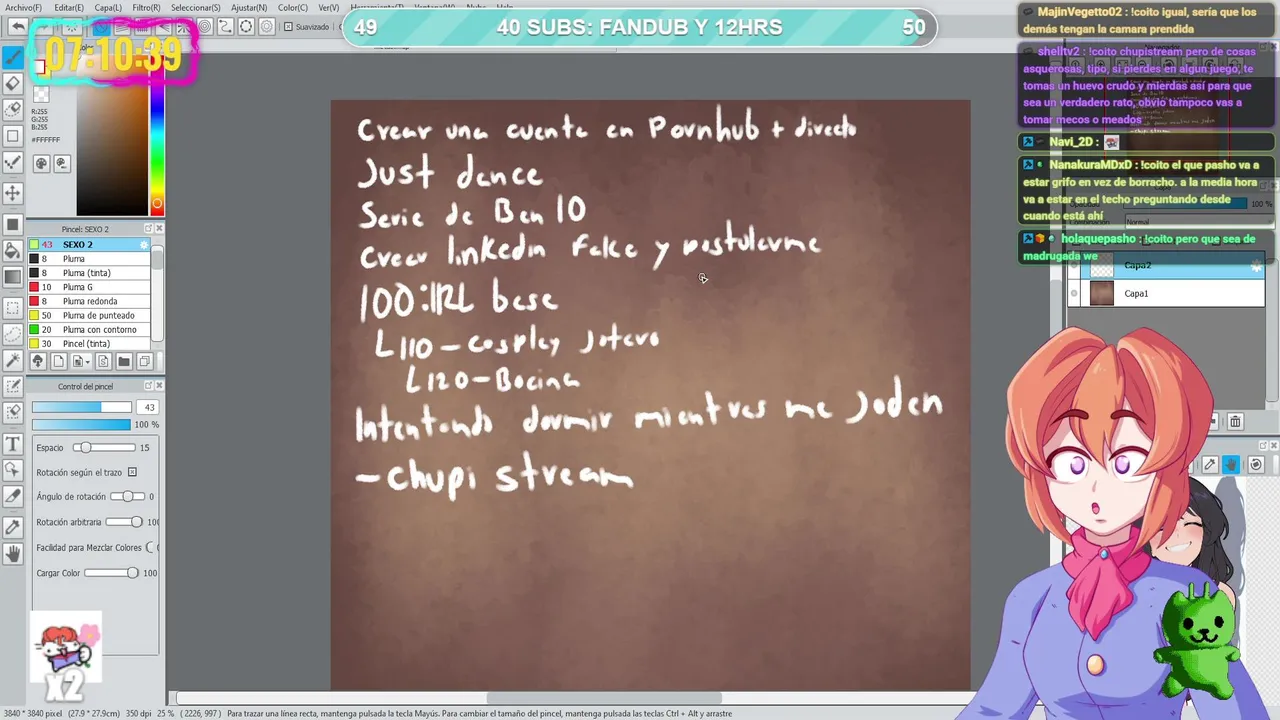 Archivo(F) Editar(E) Capa(L) Filtro(R) Seleccionar(S) Ajustar(N) Color(C) Ver(V)
Suavizado
49 40 SUBS: FANDUB Y 12HRS 50
07:10:39
R:255
G:255
B:255
#FFFFFF
Pincel: SEXO 2
43 SEXO 2
8 Pluma
8 Pluma (tinta)
10 Pluma G
8 Pluma redonda
50 Pluma de punteado
20 Pluma con contorno
30 Pincel (tinta)
Control del pincel
43
100 %
Espacio 15
Rotación según el trazo
Ángulo de rotación 0
Rotación arbitraria
Facilidad para Mezclar Colores
Cargar Color 100
x2
Crear una cuenta en Pornhub + directo
Just dance
Serie de Ben 10
Crear linkedin fake y postularme
100:IRL base
L110-cosplay jotero
L120-Bocina
Intentando dormir mientras me joden
-chupi stream
MajinVegetto02 : !coito igual, sería que los
demás tengan la camara prendida
shelltv2 : !coito chupistream pero de cosas
asquerosas, tipo, si pierdes en algun juego, te
tomas un huevo crudo y mierdas así para que
sea un verdadero rato, obvio tampoco vas a
tomar mecos o meados
Navi_2D :
NanakuraMDxD : !coito el que pasho va a
estar grifo en vez de borracho. a la media hora
va a estar en el techo preguntando desde
cuando está ahí
holaquepasho : !coito pero que sea de
madrugada we
100 %
Normal
Capa2
Capa1
3840 * 3840 pixel (27.9 * 27.9cm) 350 dpi 25 % ( 2226, 997 ) Para trazar una línea recta, mantenga pulsada la tecla Mayús. Para cambiar el tamaño del pincel, mantenga pulsadas las teclas Ctrl + Alt y arrastre